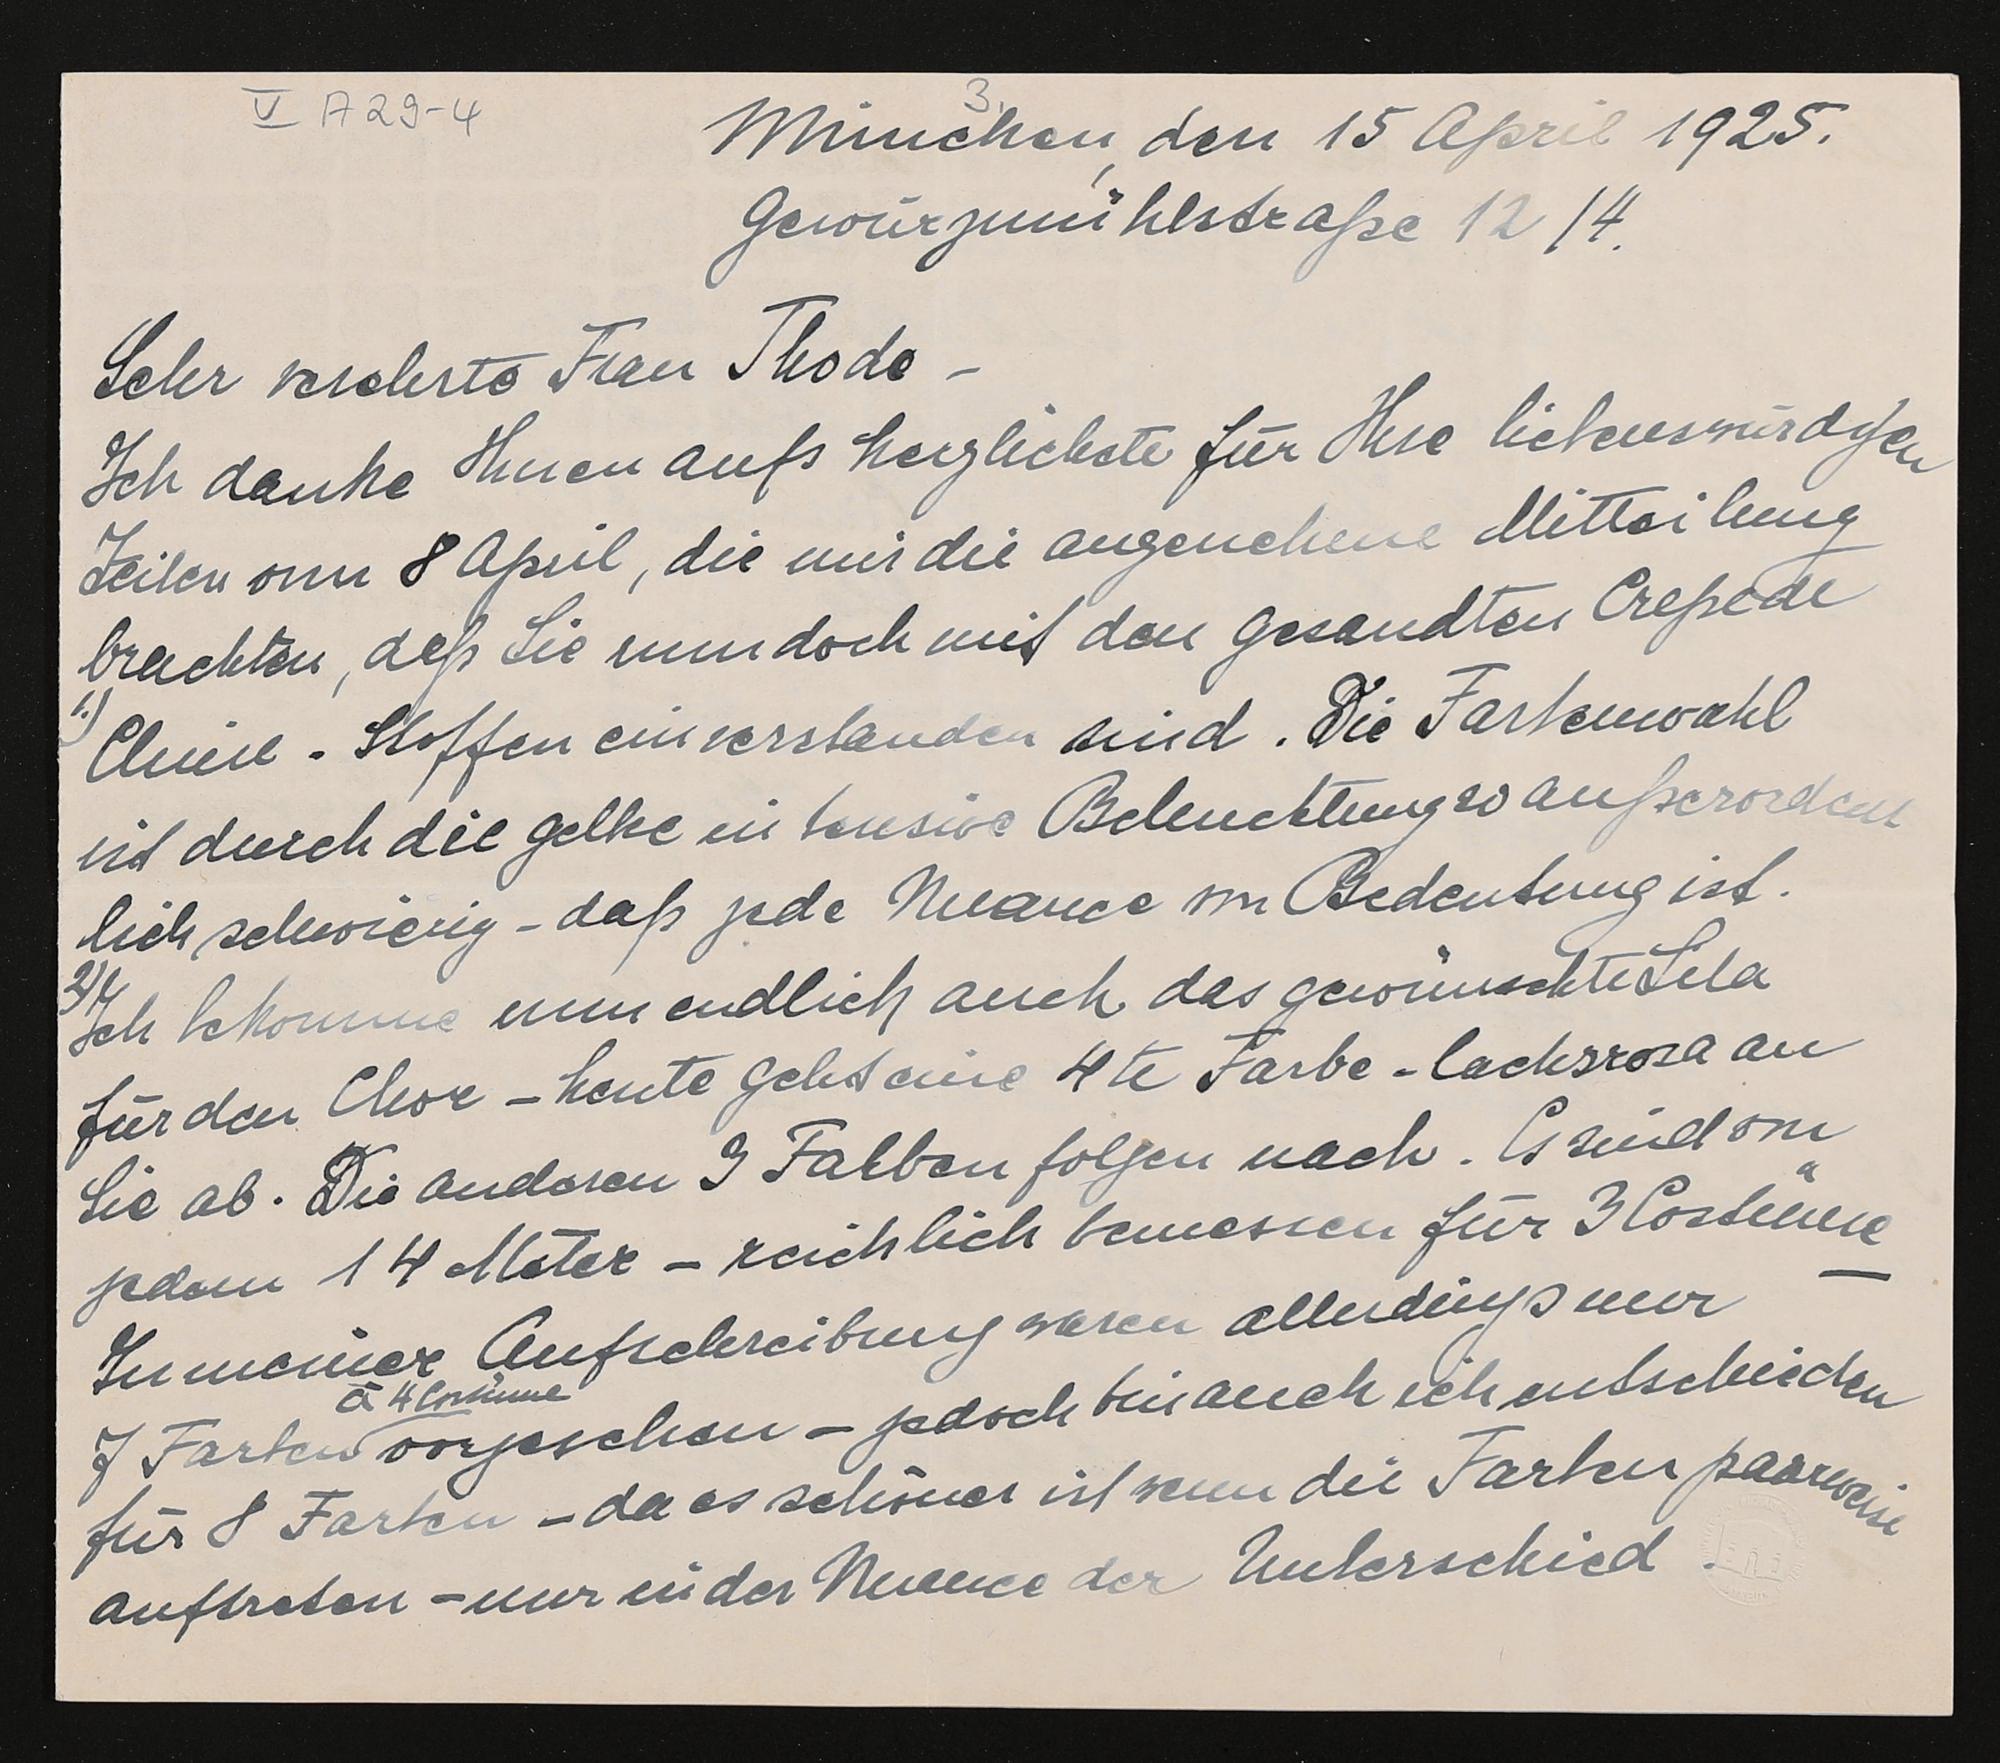 V A29-4
3.
München, den 15 April 1925.
Gewürzmühlstraße 12/4.
Sehr verehrte Frau Thode –
Ich danke Ihnen aufs herzlichste für Ihre liebenswürdigen
Zeilen vom 8 April, die mir die angenehme Mitteilung
brachten, daß Sie nun doch mit den gesandten Crepe de
1.)
Chine - Stoffen einverstanden sind. Die Farbenwahl
ist durch die gelbe intensive Beleuchtung so außerordent
lich schwierig – daß jede Nuance von Bedeutung ist.
2)
Ich bekomme nun endlich auch das gewünschte Lila
für den Chor – heute geht eine 4te Farbe - lachsrosa an
Sie ab. Die anderen 3 Farben folgen nach. Es sind von
jedem 14 Meter – reichlich bemessen für 3 Costüme –
In meiner Aufschreibung waren allerdings nur
à 4 Costüme
7 Farben vorgesehen – jedoch bin auch ich entschieden
für 8 Farben – da es schöner ist wenn die Farben paarweise
auftreten – nur in der Nuance der Unterschied.